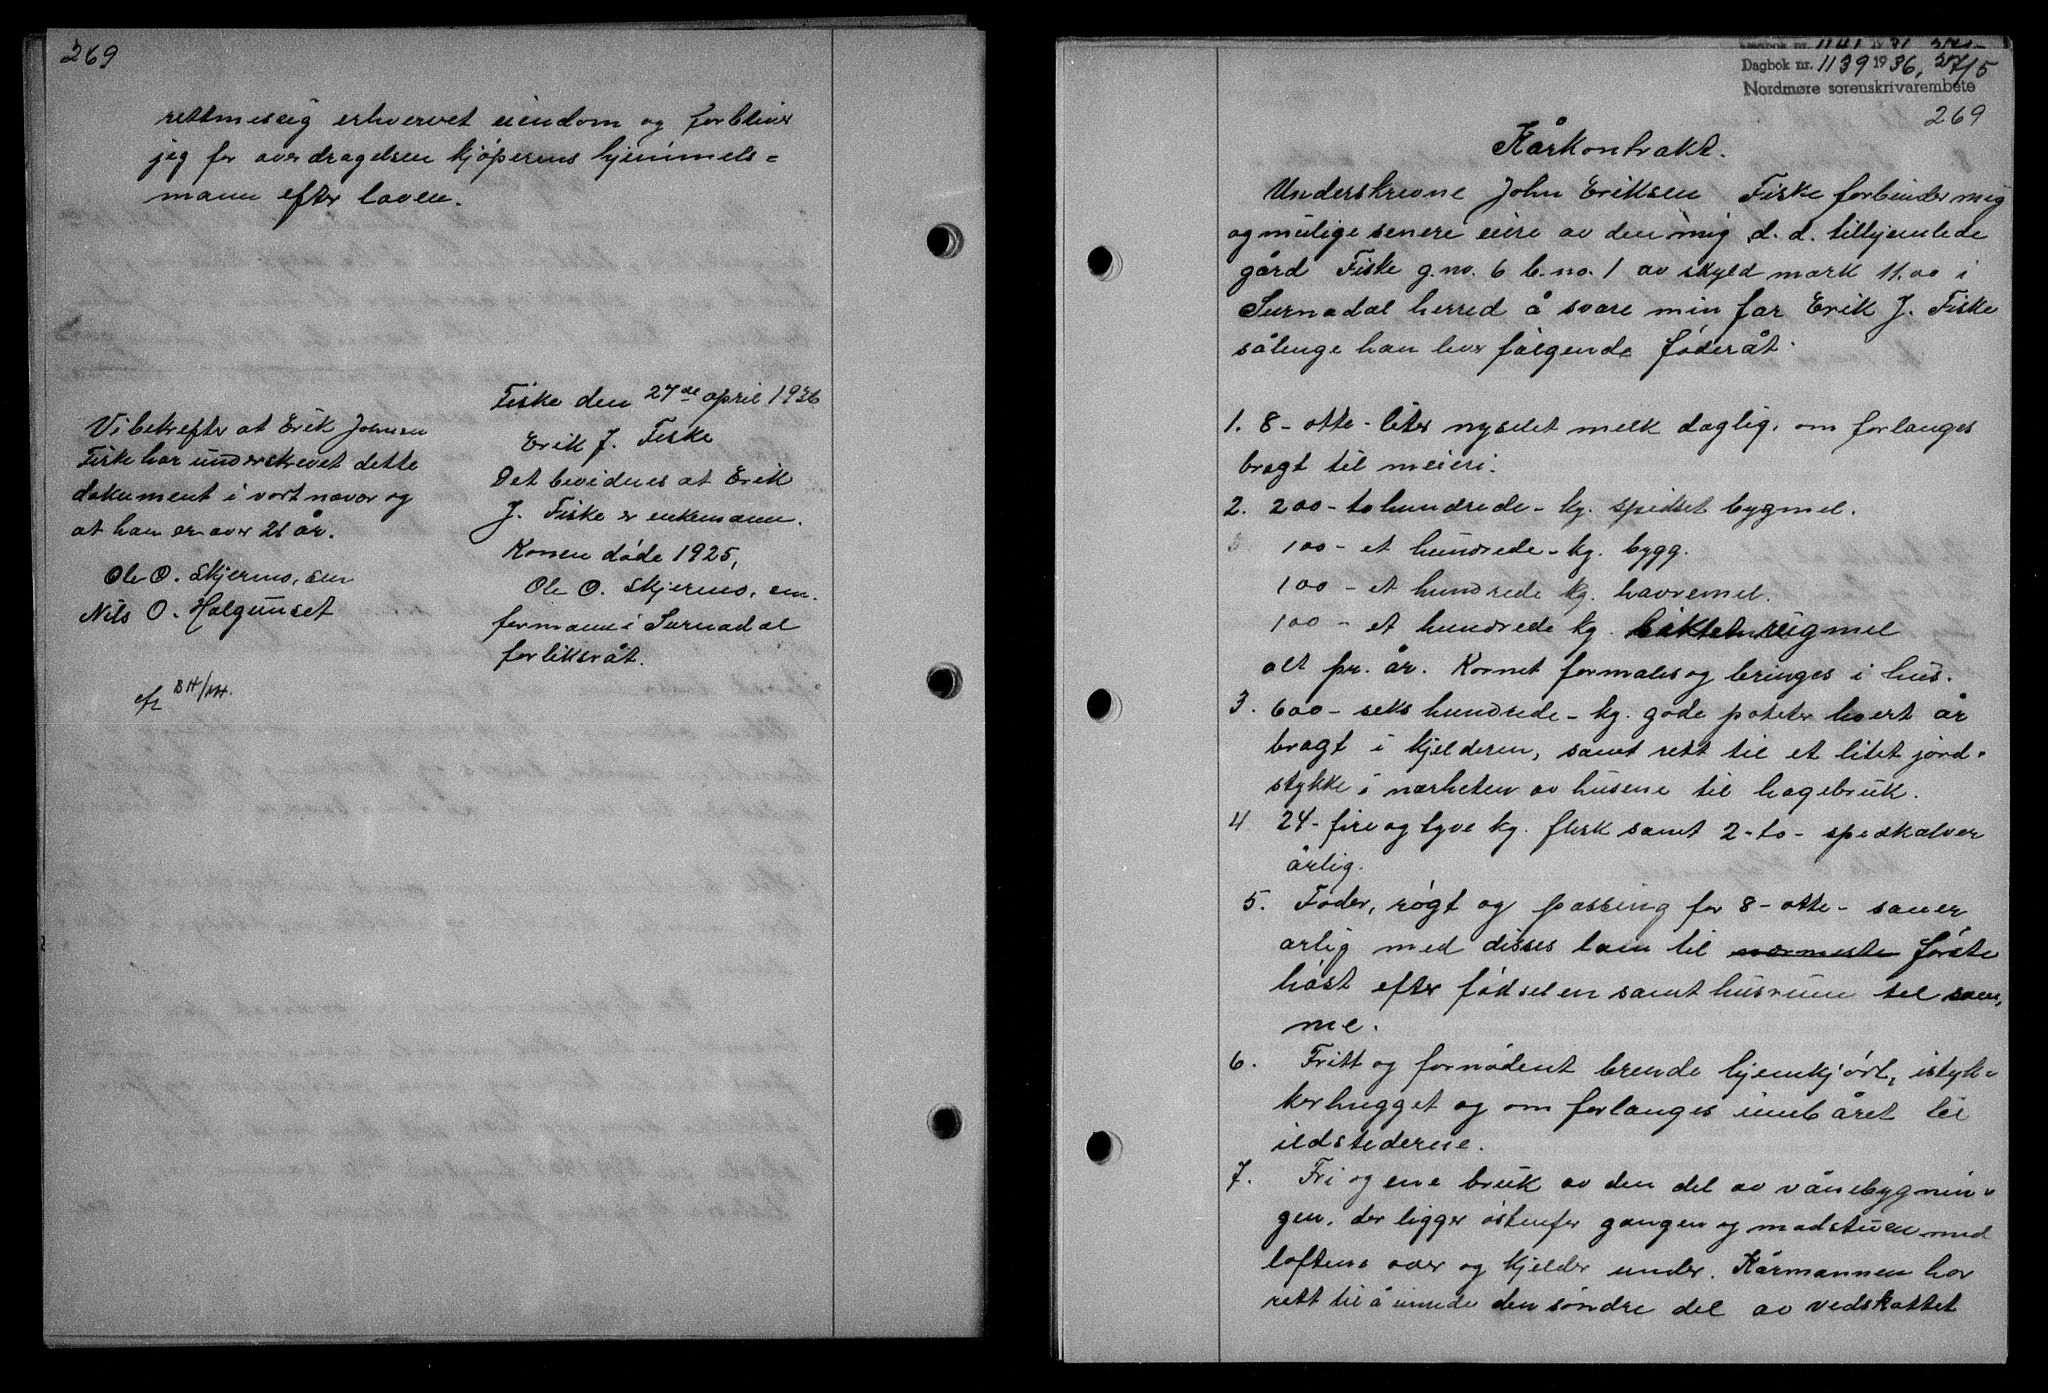 269
rettmessig erhvervet eiendom og forbliver
jeg for overdragelsen kjøperens hjemmels=
mann efter loven.
Fiske den 27de april 1936
Erik J. Fiske
Det bevidnes at Erik
J. Fiske er enkemann.
Konen døde 1925,
Ole O. Skjermo, sen.
formann i Surnadal
forliksråt.
Vi bekrefter at Erik Johnsen
Fiske har underskrevet dette
dokument i vort nævær og
at han er over 21 år.
Ole O. Skjermo, sen
Nils O. Halgunset
BH/MH.
Dagbok nr. 1139 1936, 27/5
Nordmøre sorenskrivarembete
269
Kårkontrakt.
Underskrevne John Eriksen Fiske forbinder mig
og mulige senere eiere av den mig d. d. tilhjemlede
gård Fiske g.no. 6 b.no. 1 av skyld mark 11.00 i
Surnadal herred å svare min far Erik J. Fiske
sålenge han lever følgende føderåt.
1. 8 - otte - liter nysilet melk daglig, om forlanges
bragt til meieri.
2. 200 - tohundrede - kg. sigtet bygmel.
100 - et hundrede - kg. bygg.
100 - et hundrede kg. havremel.
100 - et hundrede kg. rugmel
alt pr. år. Kornet formales og bringes i hus.
3. 600 - seks hundrede - kg. gode poteter hvert år
bragt i kjelderen, samt rett til et litet jord=
stykke i nærheten av husene til hagebruk.
4 24 - fire og tyve kg. flesk samt 2 - to - spedkalver
årlig.
5. Foder, røgt og passing for 8 - otte - sauer
årlig med disses lam til nærmeste første
høst efter fødselen samt husrum til sam,
me.
6. Fritt og fornødent brende hjemkjørt, istyk=
kerhugget og om forlanges innbåret til
ildstederne.
7. Fri og ene bruk av den del av vånebygnin=
gen, der ligger østenfor gangen og madstuen med
loftene over og kjelder under. Kårmannen har
rett til å innrede den søndre del av vedskottet